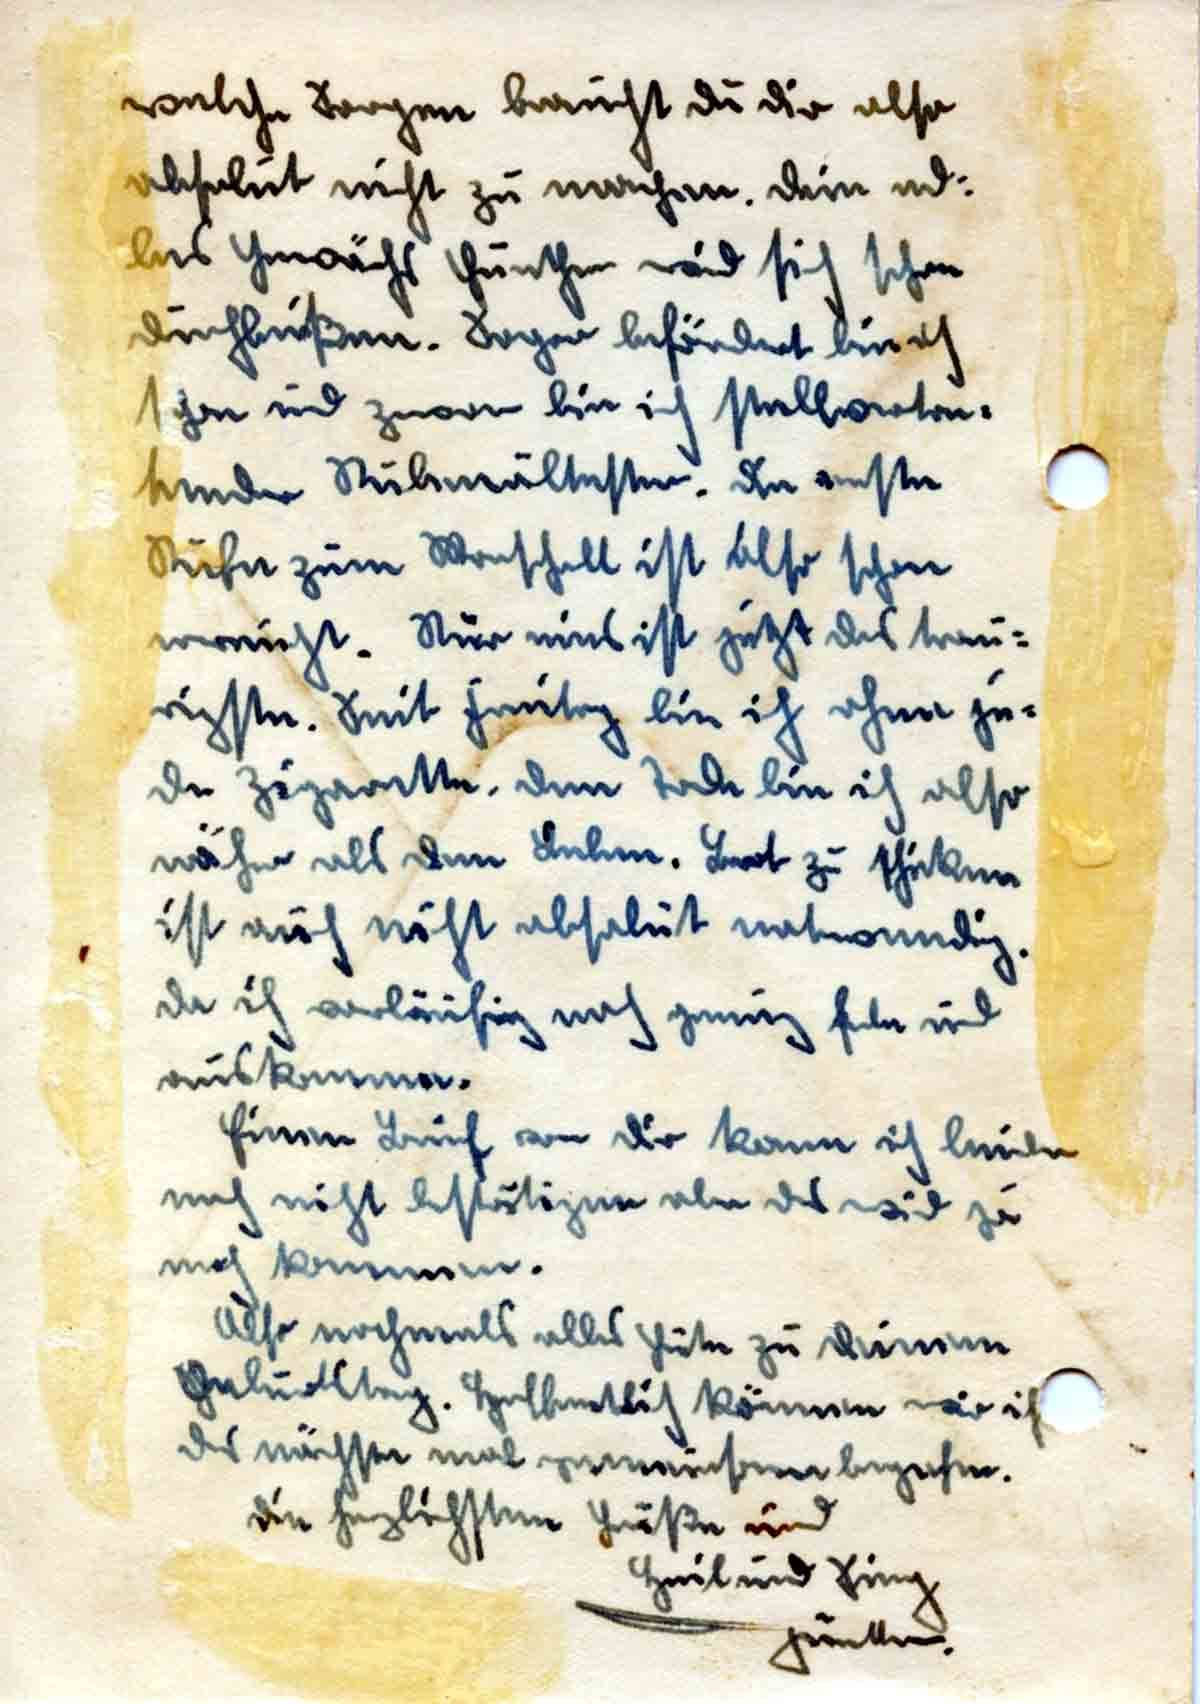 welche Sorgen brauchst du dir also
absolut nicht zu machen. Dein ed-
les Gewächs Günther wird sich schon
durchbeißen. Sogar befördert bin ich
schon und zwar bin ich stellvertre-
tender Stubenältester. Die erste
Stufe zum Marschall ist also schon
erreicht. Nur eins ist jetzt das trau-
rigste. Seit Freitag bin ich ohne je-
de Zigarette. Dem Tode bin ich also
näher als dem Leben. Brot zu schicken
ist auch nicht absolut notwendig.
da ich vorläufig noch genug habe und
auskomme.
Einen Brief von dir kann ich leider
noch nicht bestätigen aber das wird ja
noch kommen.
Also nochmals alles Gute zu deinem
Geburtstag. Hoffentlich können wir ihn
das nächste mal gemeinsam begehen.
Die herzlichsten Grüße und
Heil und Sieg
Günther.